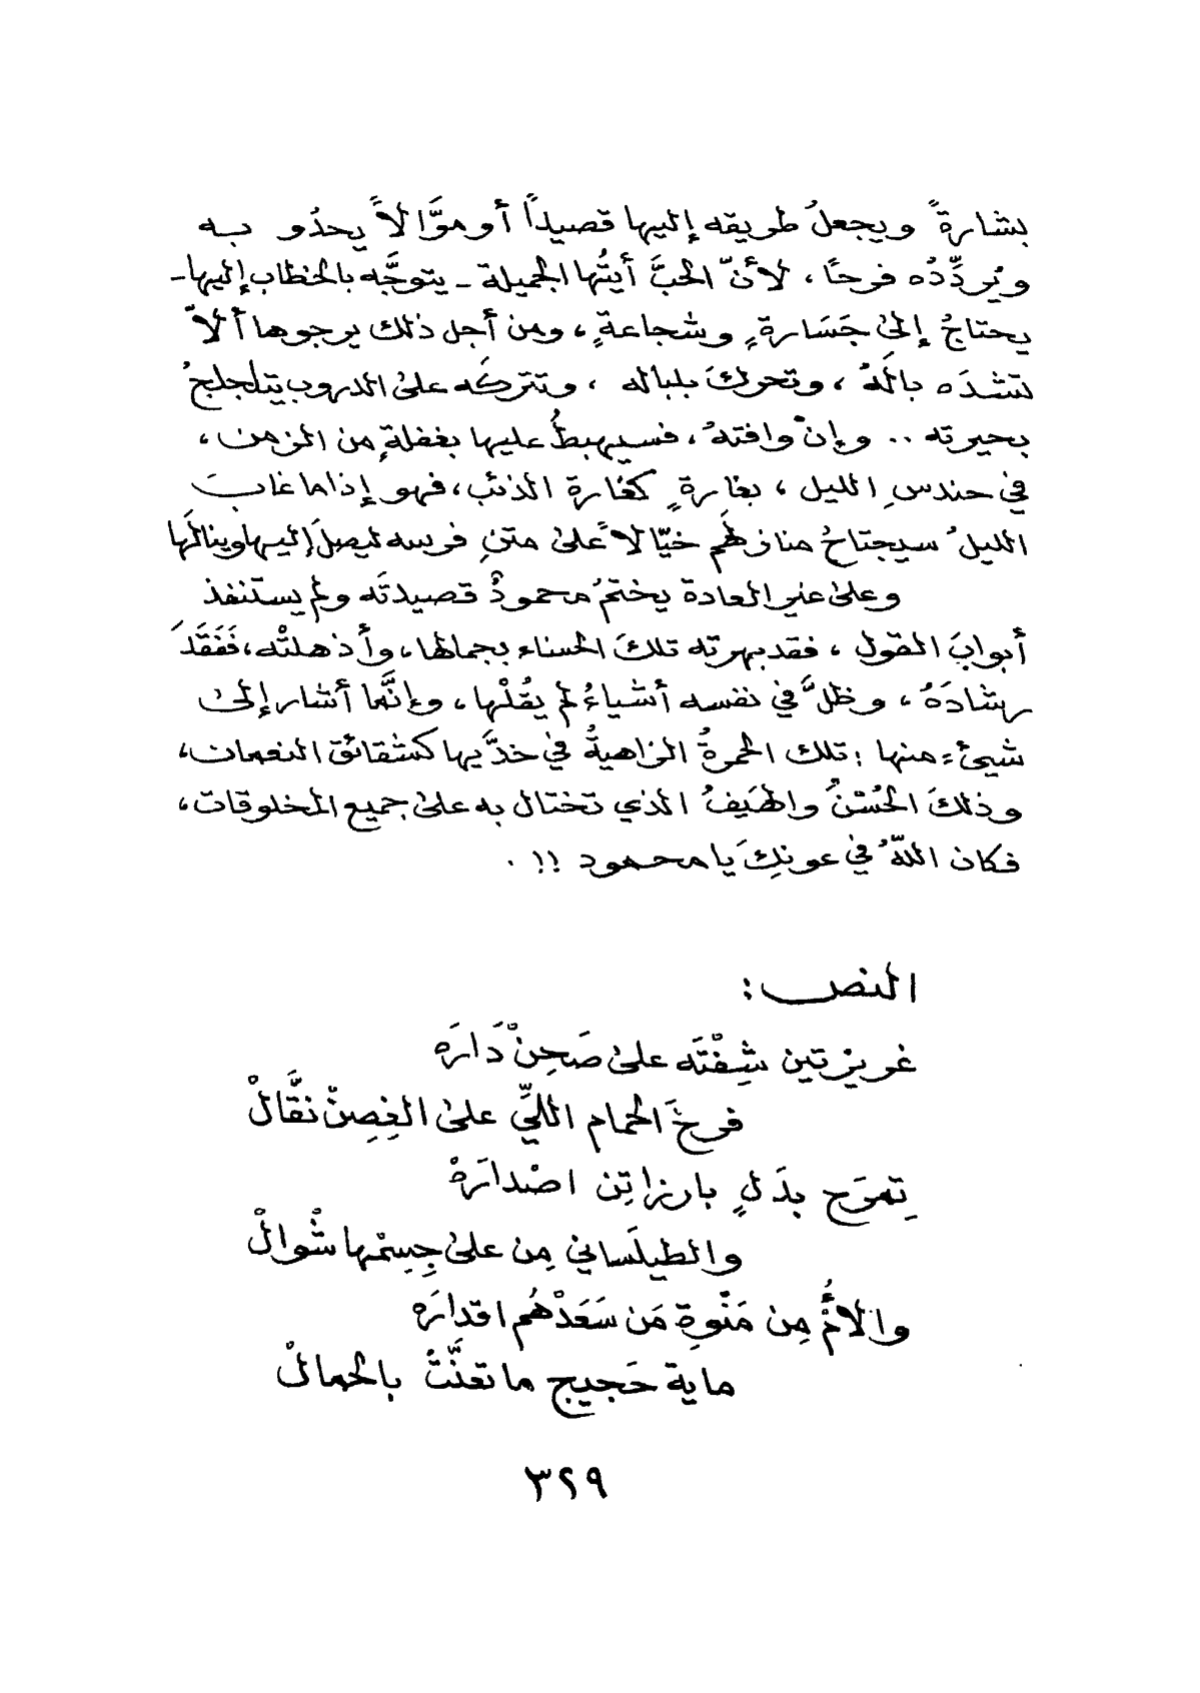 بشارةً ويجعلُ طريقه إليها قصيداً أو موَّالاً يحدُو به
ويُردِّدُه فرحًا، لأنّ الحبَّ أيتُها الجميلة - يتوجَّه بالخطاب إليها -
يحتاجُ إلى جَسَارةٍ وشجاعةٍ، ومن أجل ذلك يرجوها ألاّ
تشدَه بالَهُ، وتحركَ بلباله، وتتركَه على الدروب يتلجلجُ
بحيرته .. وإنْ وافتهُ، فسيهبطُ عليها بغفلةٍ من الزمن،
في حندسِ الليل، بغارةٍ كغارة الذئب، فهو إذا ما غابَ
الليلُ سيجتاحُ منازلهَم خيّالاً على متنِ فرسه ليصلَ إليها وينالَها
وعلى غير العادة يختمُ محمودُ قصيدتَه ولم يستنفذ
أبوابَ القول، فقد بهرته تلكَ الحسناء بجمالها، وأذهلتْه، فَفَقَدَ
رشادَهُ، وظلَّ في نفسه أشياءُ لم يقُلْها، وإنَّما أشار إلى
شيئ منها: تلك الحمرةُ الزاهيةُ في خدَّيها كشقائق النعمان،
وذلكَ الحُسْنُ والهَيفُ الذي تختال به على جميع المخلوقات،
فكان اللّهُ في عونِكَ يا محمود !! .
النص:
غريزتين شِفْتَه على صَحِنْ دَارَه
فرخَ الحمام اللّي على الغِصِنْ نقَّالْ
تِمرَح بدَلٍ بارزاتِن اصْدارَهْ
والطيلَساني مِن على جِسِمْها شْوالْ
والامُّ مِن مَنْوةِ مَن سَعَدْهُم اقدارَه
ماية حَجيج ما تعنَّتْ بالحمالْ
٣٢٩